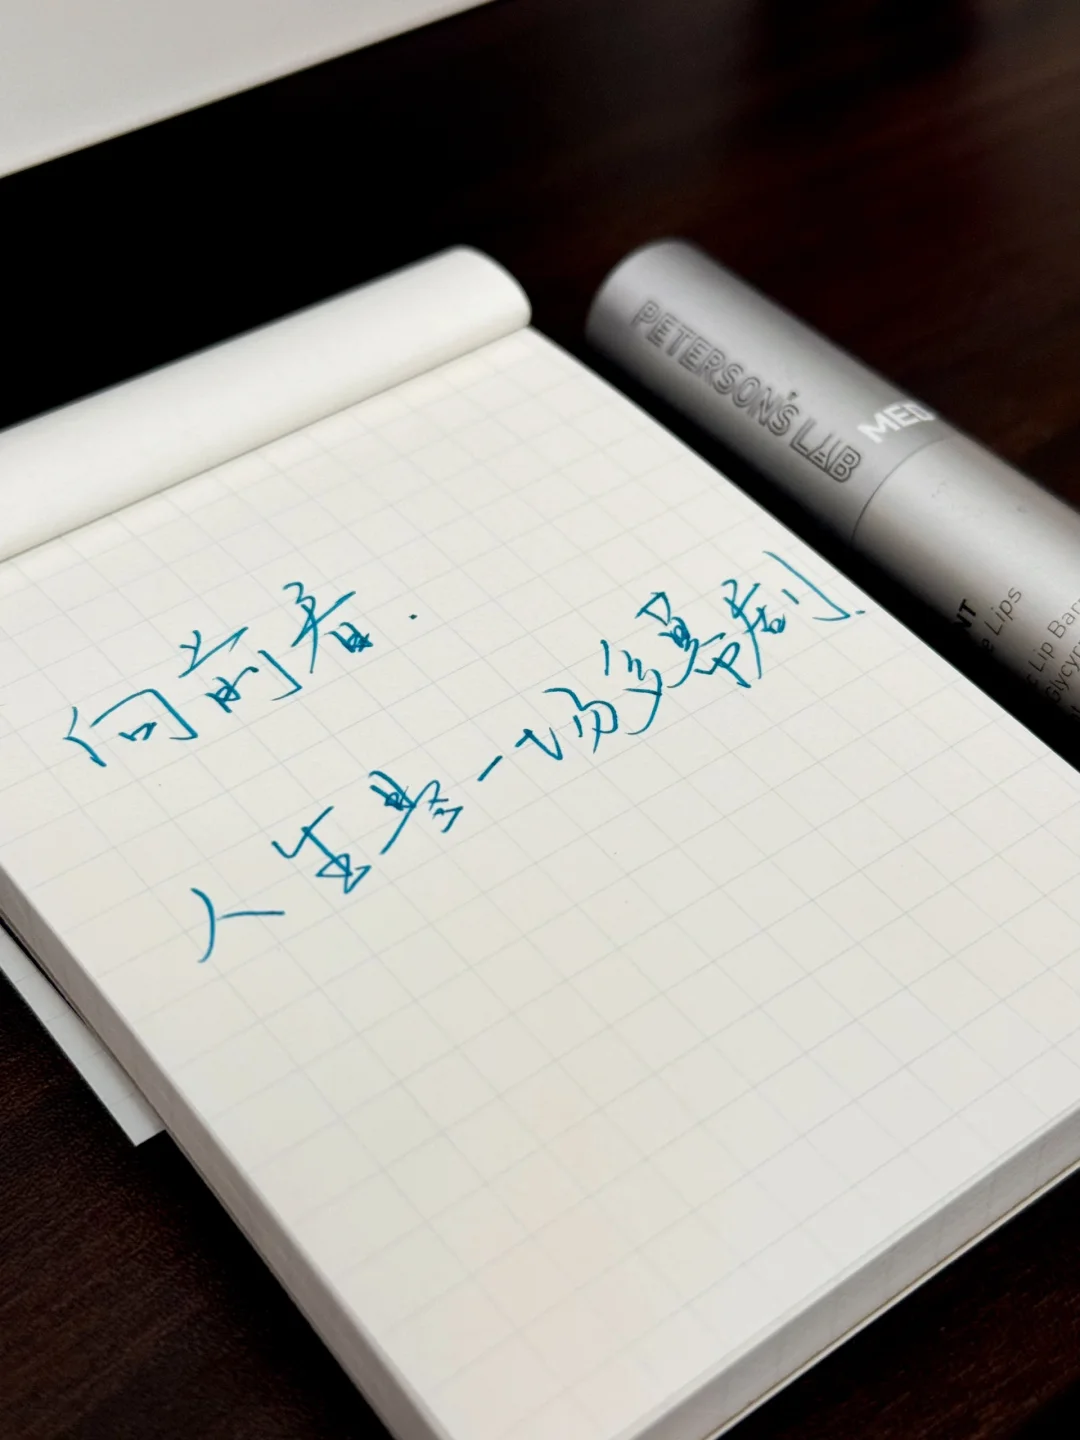 向前看.
人生是一场多幕剧.
PETERSON'S LAB
MED
NT
e Lips
Lip Bar
Glycy